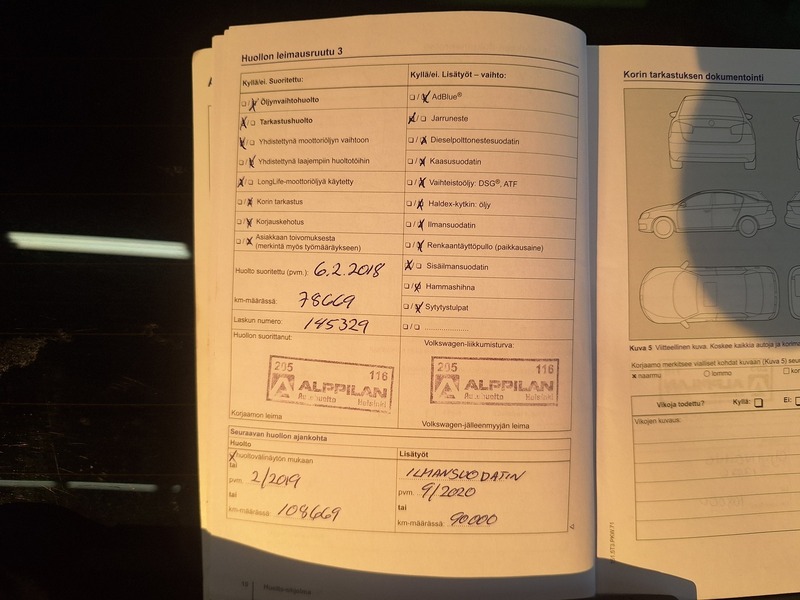 Huollon leimausruutu 3
Kyllä/ei. Suoritettu:
☐/☒ Öljynvaihtohuolto
☒/☐ Tarkastushuolto
☒/☐ Yhdistettynä moottoriöljyn vaihtoon
☐/☒ Yhdistettynä laajempiin huoltotöihin
☒/☐ LongLife-moottoriöljyä käytetty
☐/☒ Korin tarkastus
☐/☒ Korjauskehotus
☐/☒ Asiakkaan toivomuksesta
(merkintä myös työmääräykseen)
Huolto suoritettu (pvm.): 6.2.2018
km-määrässä: 78669
Laskun numero: 145329
Huollon suorittanut:
205 116
ALPPILAN
Autohuolto Helsinki
Korjaamon leima
Kyllä/ei. Lisätyöt – vaihto:
☐/☒ AdBlue®
☒/☐ Jarruneste
☐/☒ Dieselpolttonestesuodatin
☐/☒ Kaasusuodatin
☐/☒ Vaihteistoöljy: DSG®, ATF
☐/☒ Haldex-kytkin: öljy
☐/☒ Ilmansuodatin
☐/☒ Renkaantäyttöpullo (paikkausaine)
☒/☐ Sisäilmansuodatin
☐/☒ Hammashihna
☐/☒ Sytytystulpat
☐/☐ ......................
Volkswagen-liikkumisturva:
205 116
ALPPILAN
Autohuolto Helsinki
Volkswagen-jälleenmyyjän leima
Seuraavan huollon ajankohta
Huolto
☒ huoltovälinäytön mukaan
tai
pvm. 2/2019
tai
km-määrässä: 108669
Lisätyöt
ILMANSUODATIN
pvm. 9/2020
tai
km-määrässä: 90000
Korin tarkastuksen dokumentointi
Kuva 5 Viitteellinen kuva. Koskee kaikkia autoja ja
Korjaamo merkitsee vialliset kohdat kuvaan (Kuva 5)
x naarmu ○ lommo ☐
Vikoja todettu? Kyllä: ☐ Ei: ☐
Vikojen kuvaus: